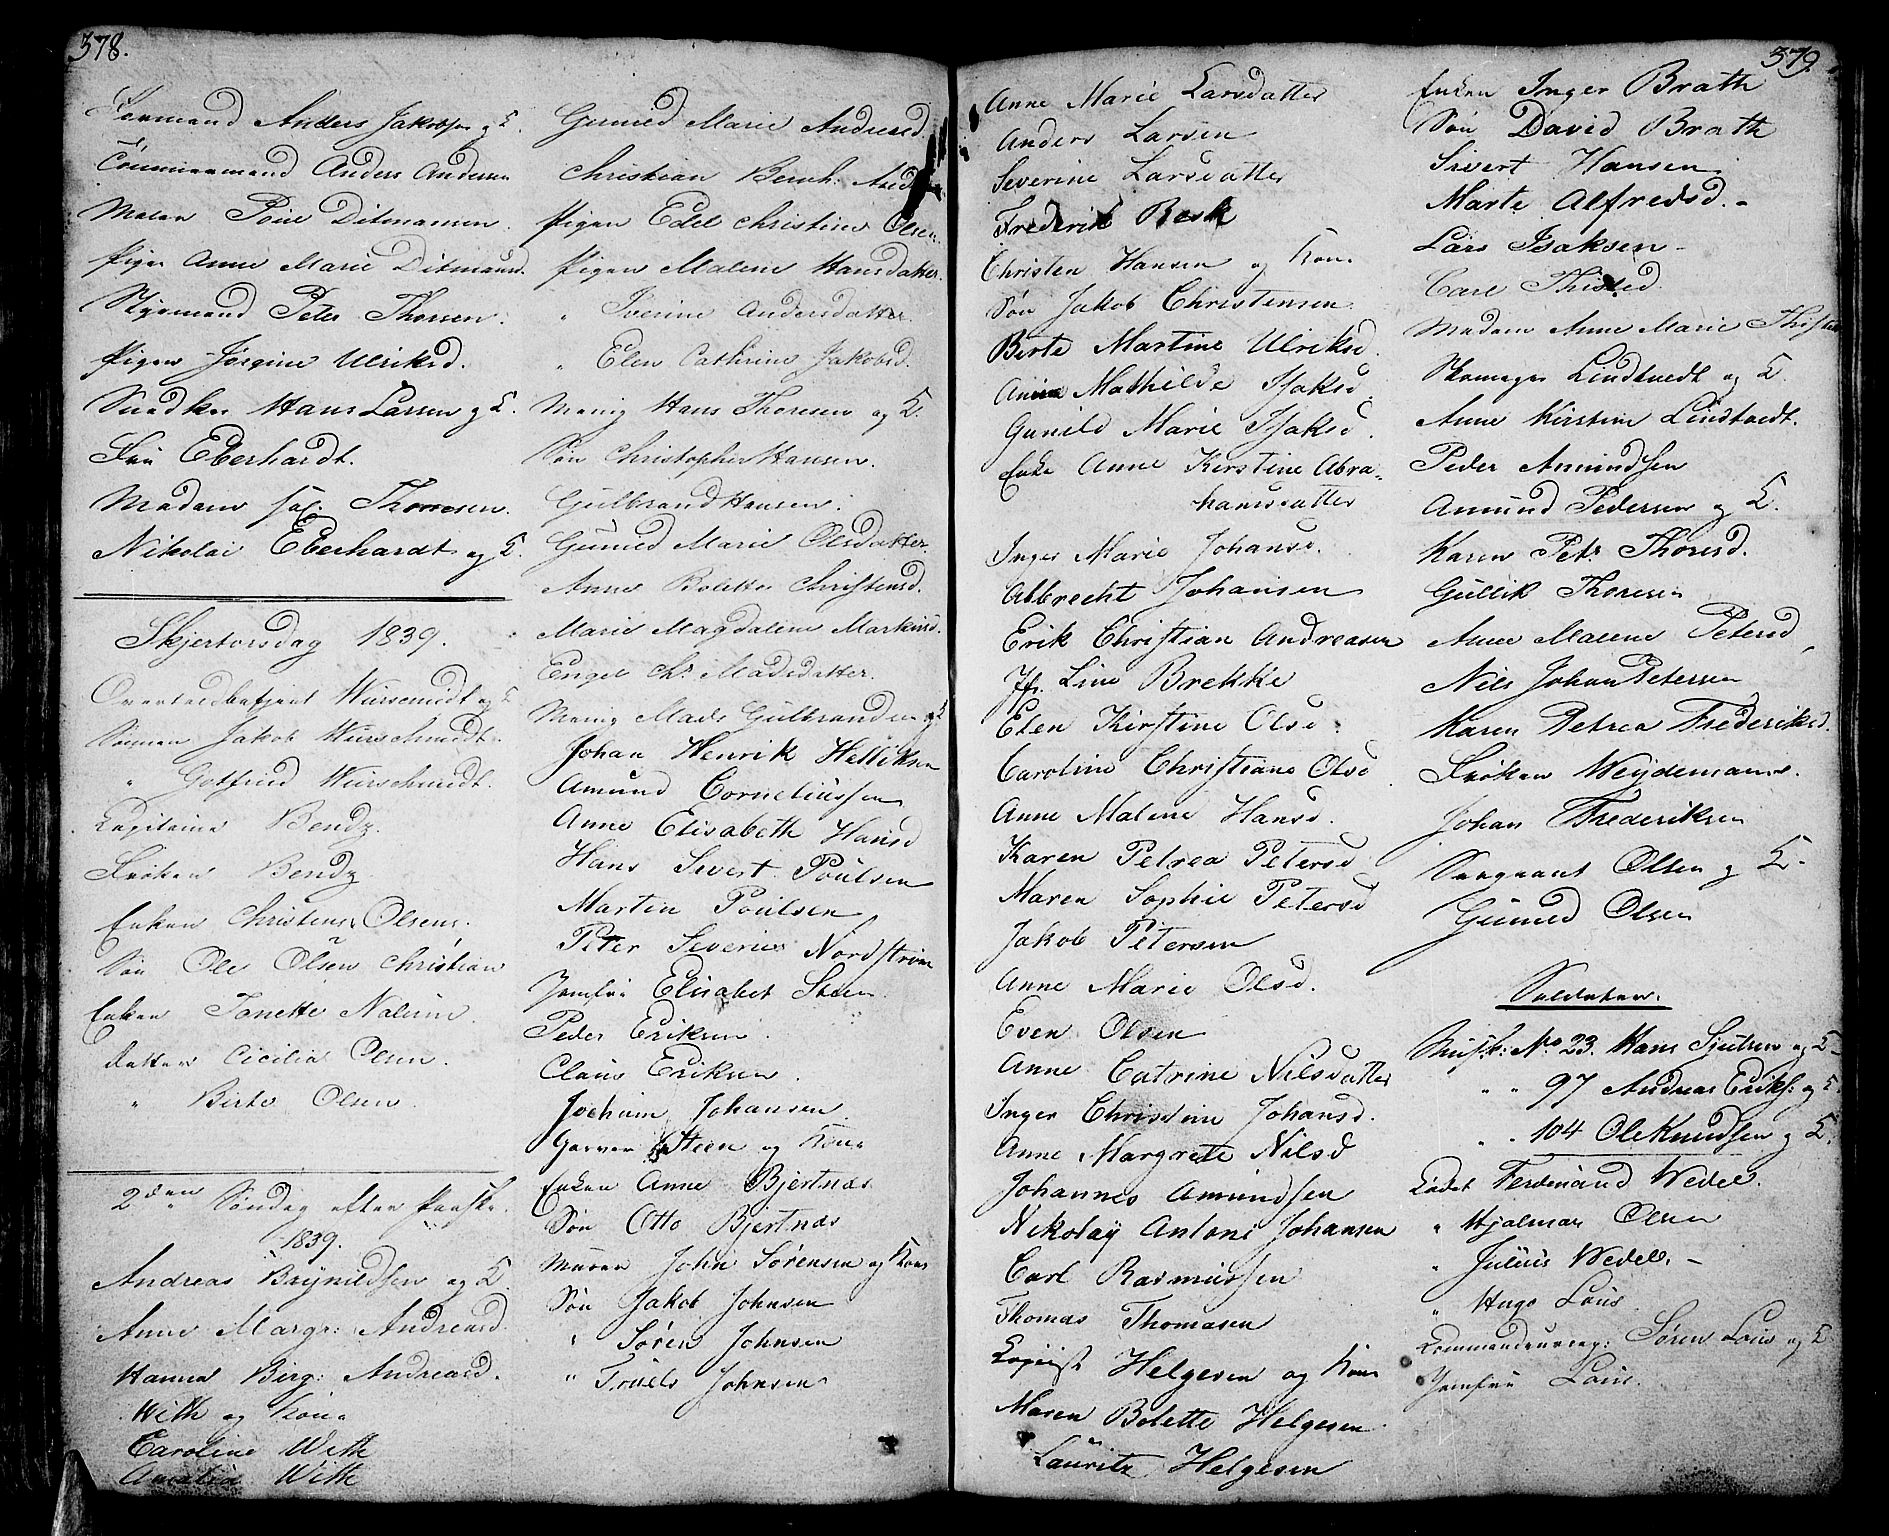 378.
Formand Anders Jakobsen og K.
Tømmermand Anders Andersen
Maler Poul Ditmansen.
Pigen Anne Marie Ditmansd.
Styrmand Peter Thorsen.
Pigen Jørgine Ulriksd.
Snedker Hans Larsen og K.
Fru Eberhardt.
Madam sal. Thoresen.
Nikolai Eberhardt og K.
Skjertorsdag 1839.
Overtoldbetjent Würschmidt og K
Sønnen Jakob Würschmidt.
" Gotfried Würschmidt.
Capitaine Bendz.
Frøken Bendz.
Enken Christense Olsens.
Søn Ole Olsen Christian
Enken Janette Nalum.
datter Cicilia Olsen.
" Birte Olsen.
2den Søndag efter Paaske.
1839.
Andreas Brynildsen og K.
Anne Margr: Andreasd.
Hanna Birg: Andreasd.
With og Kone
Caroline With
Amalia With
Gunild Marie Andreasd.
Christian Bernh:
Pigen Edel Christine Olsen.
Pigen Malene Hansdatter.
" Iverine Andersdatter.
" Elen Cathrine Jakobsd.
Menig Hans Thoresen og K.
Søn Christopher Hansen.
Gulbrand Hansen.
Gunild Marie Olsdatter.
Anne Bolette Christensd.
Marie Magdalene Markusd.
Engel Chr. Madsdatter.
Menig Mads Gulbrandsen og K
Johan Henrik Helliksen
Amund Corneliussen
Anne Elisabeth Hansd
Hans Sivert Poulsen
Martin Poulsen
Peter Severin Nordstrøm
Jomfru Elisabet Steen.
Peder Eriksen.
Claus Eriksen.
Jochum Johansen.
Garver Steen og Kone
Enken Anne Bjertnæs
Søn Otto Bjertnæs
Murer John Sørensen og Kone
Søn Jakob Johnsen
" Søren Johnsen
" Truels Johnsen
379.
Anne Marie Larsdatter
Anders Larsen
Severine Larsdatter
Frederik Besk
Christen Hansen og Kone
Søn Jakob Christensen.
Birte Martine Ulriksd.
Anne Mathilde Isaksd
Gunild Marie Isaksd.
Enke Anne Kirstine Abra-
hamsdatter
Inger Marie Johansd.
Albrecht Johansen
Erik Christian Andreasen
Jfr. Line Brekke
Elen Kirstine Olsd.
Caroline Christiane Olsd
Anne Malene Hansd.
Karen Petrea Petersd
Maren Sophie Petersd
Jakob Petersen
Anne Marie Olsd.
Even Olsen
Anne Catrine Nilsdatter
Inger Christine Johansd.
Anne Margrete Nilsd
Johannes Amundsen
Nikolay Antoni Johansen
Carl Rasmussen
Thomas Thomasen
Copiist Helgesen og Kone
Maren Bolette Helgesen
Lauritz Helgesen
Enken Inger Brath
Søn David Brath
Sivert Hansen.
Marte Alfredsd.
Lars Isaksen
Carl Thisted.
Madam Anne Marie Thisted
Skomager Lindtvedt og K.
Anne Kirstine Lindtvedt.
Peder Amundsen
Amund Pedersen og K.
Karen Petr. Thoresd.
Gullik Thoresen
Anne Malene Petersd
Nils Johan Petersen
Karen Petrea Frederiksd.
Frøken Weydemann.
Johan Frederiksen
Sergeant Olsen og K.
Gunild Olsen
Soldater.
Musk: No 23. Hans Sjulsen og K.
" " 97 Andreas Eriks: og K
" " 104 Ole Knudsen og K.
Cadet Ferdinand Wedel.
" Hjalmar Olsen
" Julius Wedel.
" Hugo Lous
Commandeurcap: Søren Lous og K
Jomfru Lous.